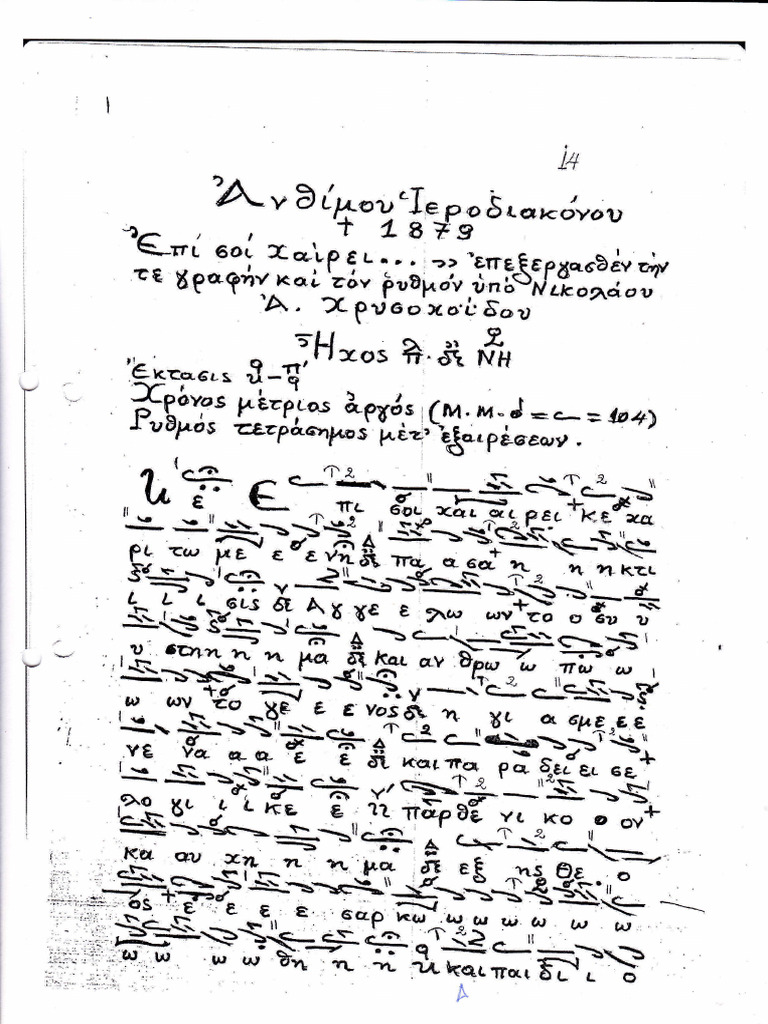 14
Ἀνθίμου Ἱεροδιακόνου
† 1879
Ἐπί σοί χαίρει... » ἐπεξεργασθέν τήν
τε γραφήν καί τόν ρυθμόν ὑπό Νικολάου
Ἀ. Χρυσοχοΐδου
Ἦχος λ π. δι ΝΗ
Ἔκτασις
Χρόνος μέτριος ἀργός (Μ.Μ. = 104)
Ρυθμός τετράσημος μέτ' ἐξαιρέσεων.
ε Ε πι σοι χαι αι ρει κε χα
ρι τω με ε ε νη δι πα α σα η η η κτι
ι ι ι σις δι Α γγε ε λω ων το ο συ υ
υ στη η η η μα δι και αν θρω ω πω ω
ω ων το γε ε ε νος δι η γι α σμε ε ε
νε να α α ε ε δι και πα ρα δει ει σε
λο γι ι ι κε ε παρ θε νι κο ο ον
κα αυ χη η η η μα δι εξ ης Θε ο
ος ε ε ε ε σαρ κω ω ω ω ω ω ω
ω ω ω ω θη η η και παι δι ι ο